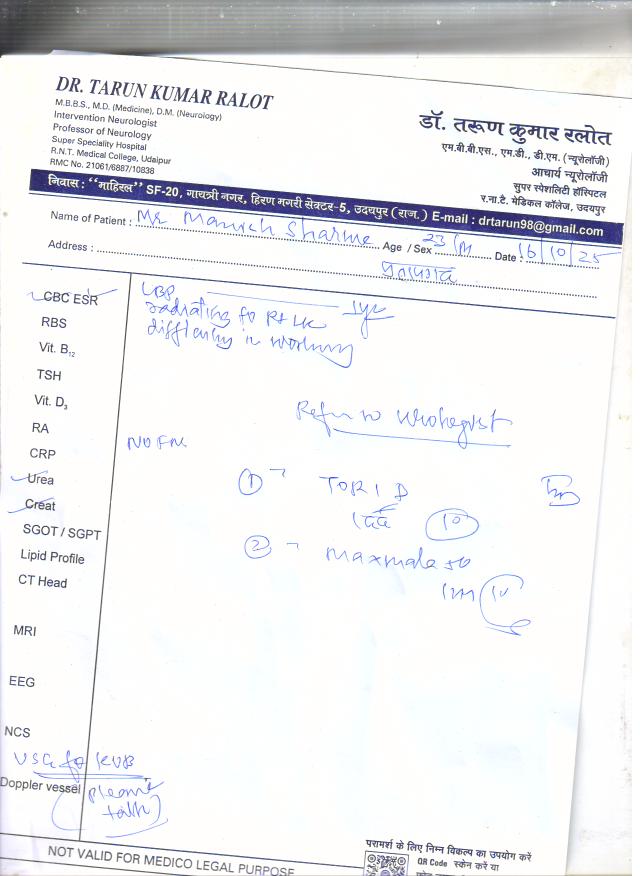 DR. TARUN KUMAR RALOT
M.B.B.S., M.D. (Medicine), D.M. (Neurology)
Intervention Neurologist
Professor of Neurology
Super Speciality Hospital
R.N.T. Medical College, Udaipur
RMC No. 21061/6887/10838
डॉ. तरूण कुमार रलोत
एम.बी.बी.एस., एम.डी., डी.एम. (न्यूरोलॉजी)
आचार्य न्यूरोलॉजी
सुपर स्पेशलिटी हॉस्पिटल
र.ना.टै. मेडिकल कॉलेज, उदयपुर
निवास : "माहिरल" SF-20, गायत्री नगर, हिरण मगरी सेक्टर-5, उदयपुर (राज.) E-mail : drtarun98@gmail.com
Name of Patient : Mr Manish Sharma Age / Sex 23/M Date : 16/10/25
Address :
CBC ESR
LBP
radiating to Rt
RBS
difficulty in
Vit. B12
TSH
Vit. D3
Refer to Urologist
RA
CRP
Urea
① TOR1 D
Creat
10
SGOT / SGPT
② maxmala 50
Lipid Profile
CT Head
MRI
EEG
NCS
USG for KUB
Doppler vessel
(please talk)
परामर्श के लिए निम्न विकल्प का उपयोग करें
NOT VALID FOR MEDICO LEGAL PURPOSE
QR Code स्केन करें या